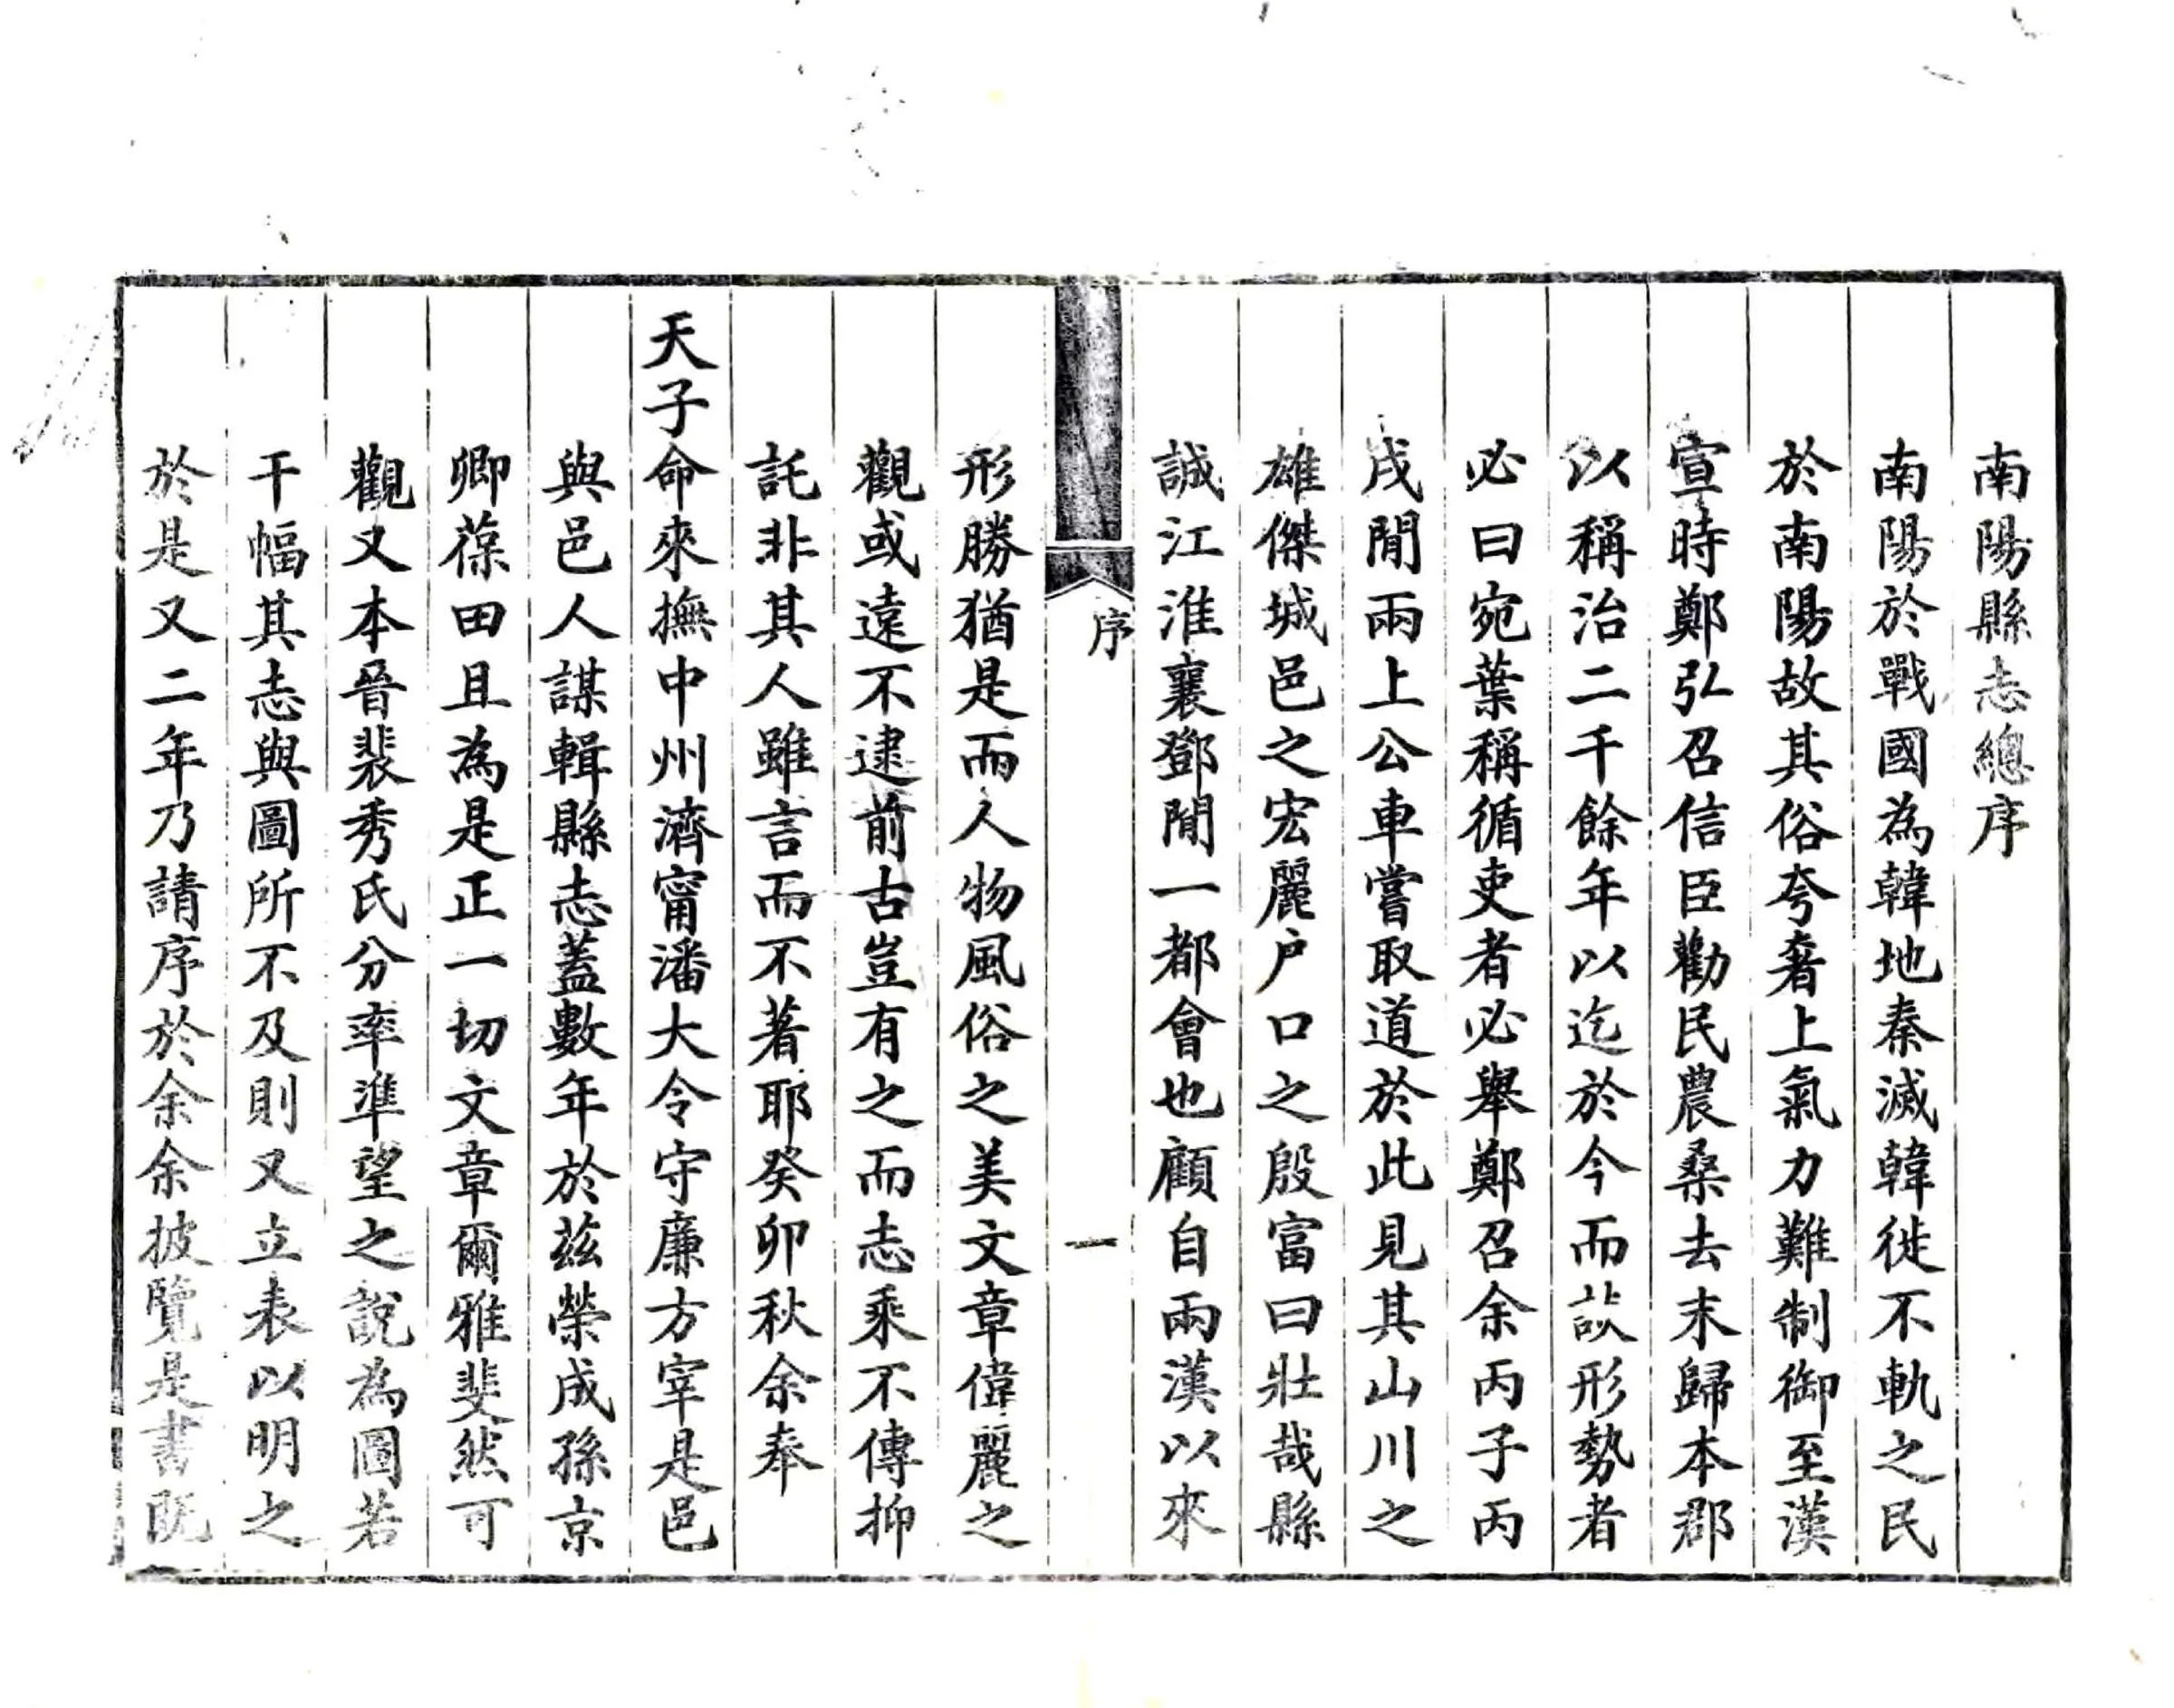 南陽縣志總序
南陽於戰國為韓地秦滅韓徙不軌之民
於南陽故其俗夸奢上氣力難制御至漢
宣時鄭弘召信臣勸民農桑去末歸本郡
以稱治二千餘年以迄於今而談形勢者
必曰宛葉稱循吏者必舉鄭召余丙子丙
戌閒兩上公車嘗取道於此見其山川之
雄傑城邑之宏麗户口之殷富曰壯哉縣
誠江淮襄鄧閒一都會也顧自兩漢以來
序
一
形勝猶是而人物風俗之美文章偉麗之
觀或遠不逮前古豈有之而志乘不傳抑
託非其人雖言而不著耶癸卯秋余奉
天子命來撫中州濟甯潘大令守廉方宰是邑
與邑人謀輯縣志蓋數年於茲榮成孫京
卿葆田且為是正一切文章爾雅斐然可
觀又本晉裴秀氏分率準望之說為圖若
干幅其志與圖所不及則又立表以明之
於是又二年乃請序於余余披覽是書既